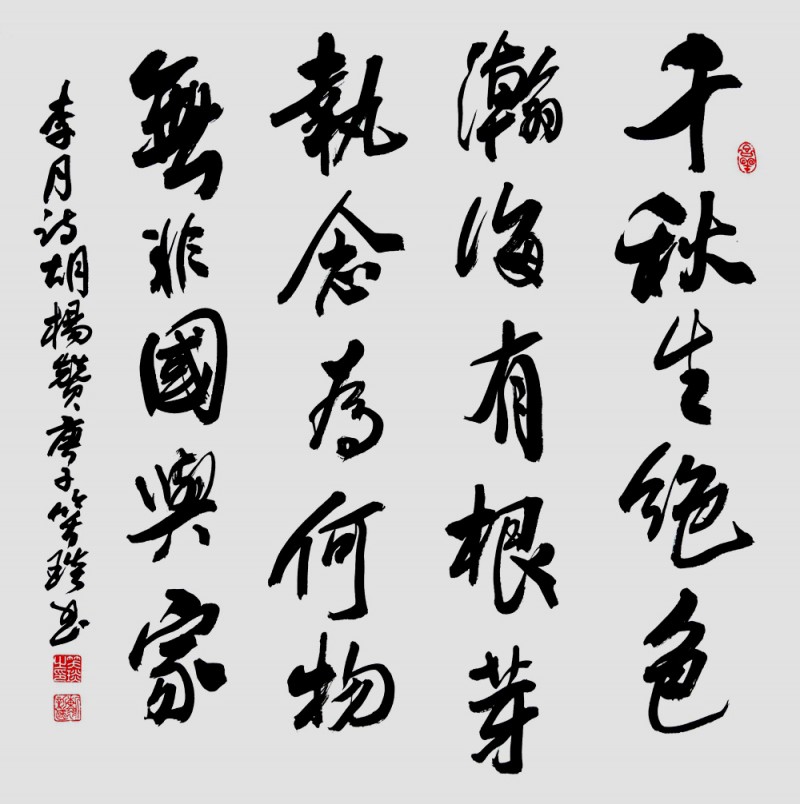 千秋生绝色
瀚海有根芽
執念為何物
無非國與家
李月诗胡楊赞庚子笑璞书